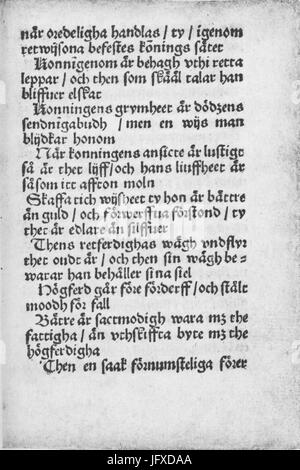 når oredeligha handlas / ty / igenom
retwijsona befestes konings sätet
Konnigenom är behagh vthi retta
leppar / och then som skääl talar han
bliffuer elskat
Konningens grymheet är dödzens
sendnigabudh / men en wijs man
blijdkar honom
När konningens ansicte är lustigt
så är thet lijff / och hans liuffheet är
såsom itt affton moln
Skaffa tich wijsheet ty hon är bättre
än guld / och förwerffua förstond / ty
thet är edlare än silffuer
Thens retferdighas wägh vndflyr
thet ondt är / och then sin wägh be=
warar han behåller sina siel
Högferd går före förderff / och stält
moodh för fall
Bätre är sactmodigh wara mz the
fattigha / än vthskiffta byte mz the
högferdigha
Then en saak förnumsteliga förer
alamy stock photo
JFXDAA